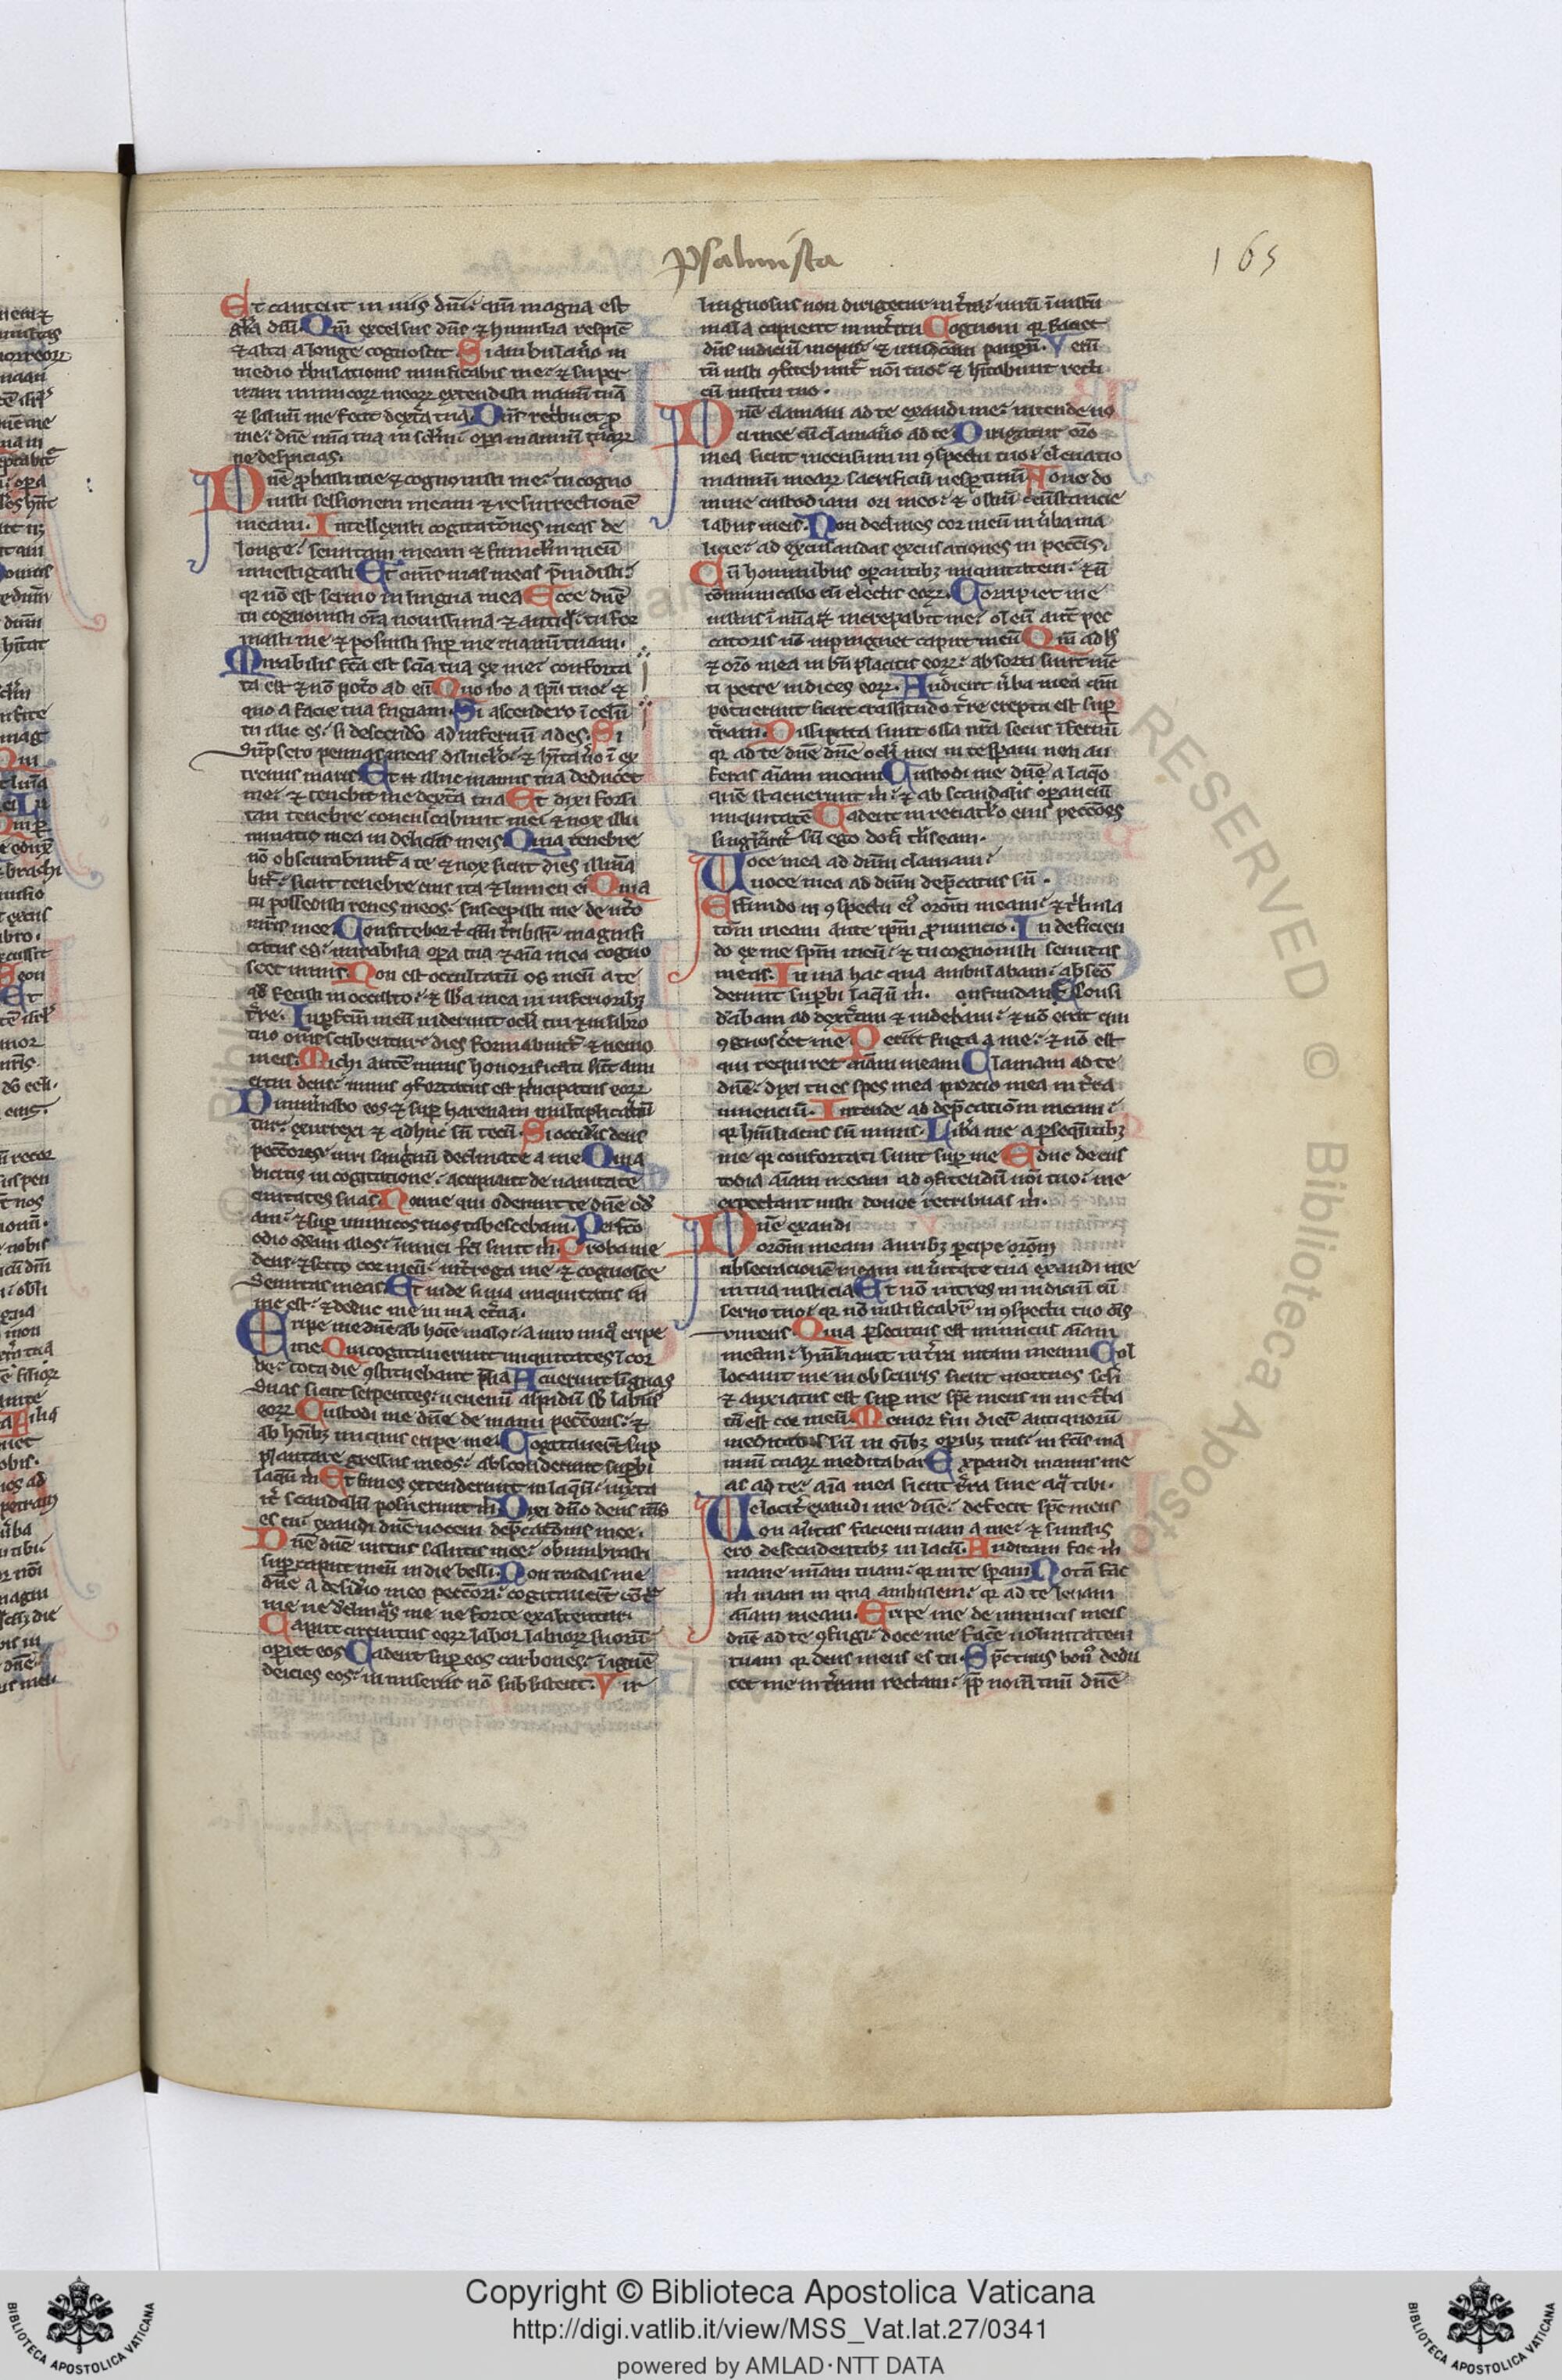 Psalmista
165
Et cantent in uiis dñi: qm̃ magna est
gl̃ia dñi Qm̃ excelsus dñs ⁊ humilia respic̃
⁊ alta a longe cognoscit. Si ambulau̾o in
medio t̾bulationis uiuificabis me: ⁊ super
iram inimicoꝝ meoꝝ extendisti manũ tuã
⁊ saluũ me fecit dext̾a tua Dñs ret̾buet ꝓ
me: dñe mĩa tua in sc̃lm: opa manuũ tuaꝝ
ne despicias.
Dñe ꝓbasti me ⁊ cognouisti me: tu cogno
uisti sessionem meam ⁊ resurrectionẽ
meam. Intellexisti cogitatõnes meas de
longe: semitam meam ⁊ funicl̃m meũ
inuestigasti Et om̃s uias meas p̃uidisti:
qꝛ nõ est sermo in lingua mea Ecce dñe
tu cognouisti om̃a nouissima ⁊ antiq̾: tu for
masti me ⁊ posuisti sup̱ me manũ tuam.
Mirabilis fc̃a est sciã tua ex me: conforta
ta est ⁊ nõ pot̾o ad eã Quo ibo a spũ tuo: ⁊
quo a facie tua fugiam. Si ascendero ĩ celũ
tu illic es: si descendo ad infernũ ades. Si
sũpsero pennas meas diluc̃lo: ⁊ hĩtau̾o ĩ ex
tremis maris Et .n. illuc manus tua deducet
me: ⁊ tenebit me dext̾a tua Et dixi forsi
tan tenebre conculcabunt me: ⁊ nox illu
minatio mea in deliciis meis Quia tenebre
nõ obscurabunt̾ a te ⁊ nox sicut dies illuĩa
bit̾: sicut tenebre eius ita ⁊ lumen ei̾ Quia
tu possedisti renes meos: suscepisti me de ut̾o
mr̃is mee Confitebor t̾ qm̃ t̾ribilit̾ magnifi
catus es: mirabilia opa tua ⁊ aĩa mea cogno
scet nimis. Non est occultatũ os meũ a te
qđ fecisti in occulto: ⁊ sb̃a mea in inferioribꝫ
t̾re. Inp̱fc̃m meũ uiderunt ocl̃i tui ⁊ in libro
tuo om̃s scribentur: dies formabunt̾ ⁊ nemo
in eis. Michi autẽ nimis honorificati sũt ami
ci tui deus: nimis ꝯfortatus est p̾ncipatus eoꝝ
Dinum̾abo eos ⁊ sup̱ harenam multiplicabũ
tur: exurrexi ⁊ adhuc sũ tecũ. Si occid̾is deus
pecc̃ores: uiri sanguinũ declinate a me Quia
dicitis in cogitatione: accipiant de uanitate
ciuitates suas. Nonne qui oderunt te dñe od̾
am: ⁊ sup̱ inimicos tuos tabescebam. Perfc̃o
odio oderam illos: ĩimici fc̃i sunt m̾. Proba me
deus ⁊ scito cor meũ: int̾roga me ⁊ cognosce
semitas meas. Et uide si uia iniquitatis in
me est: ⁊ deduc me in uia et̾na.
Eripe me dñe ab hoĩe malo: a uiro iniq̾ eripe
me Qui cogitauerunt iniquitates ĩ cor
de: tota die ꝯstituebant p̃lia Acuerunt lĩguas
suas sicut serpentes: uenenũ aspidũ sb̃ labiis
eoꝝ Custodi me dñe de manu pecc̃oris: ⁊
ab hoĩbꝫ iniquis eripe me: Cogitauer̃t sup
plantare gressus meos: absconderunt sup̱bi
laqũ m̾ Et funes extenderunt in laqũ: iuxta
it̾ scandalũ posuerunt m̾ Dixi dño deus m̃s
es tu: exaudi dñe uocem dep̃catõnis mee.
Dñe dñe uirtus salutis mee: obumbrasti
sup̱ caput meũ in die belli. Non tradas me
dñe a desid̾io meo pecc̃ori: cogitauer̃t cõt̾
me ne derelinq̾s me ne forte exaltentur.
Caput circuitus eoꝝ labor labioꝝ suorũ
op̱iet eos Cadent sup̱ eos carbones: ĩ ignẽ
deicies eos: in miseriis nõ subsistent. Vir
linguosus non dirigetur in t̾ra: uirũ ĩiustũ
mala capient in int̾itu Cognoui qꝛ faciet
dñs iudiciũ inopis: ⁊ uindictam paup̱ũ. Verũ
tñ iusti ꝯfitebunt̾ noĩ tuo: ⁊ hĩtabunt recti
cũ uultu tuo.
Dñe clamaui ad te exaudi me: intende uo
ci mee cũ clamau̾o ad te Dirigatur or̃o
mea sicut incensum in ꝯspectu tuo: eleuatio
manuũ mearꝝ sacrificiũ uesp̱tinũ Pone do
mine custodiam ori meo: ⁊ ostiũ circũstancie
labiis meis. Non declines cor meũ in u̾ba ma
licie: ad excusandas excusationes in pecc̃is.
Cũ hominibus op̱antibꝫ iniquitatem: ⁊ nõ
cõmunicabo cũ electis eoꝝ. Corripiet me
iustus ĩ mĩa ⁊ increpabit me: oleũ aut̃ pec
catoris nõ inpinguet caput meũ Qm̃ adh̾
⁊ or̃o mea in bñ placitis eoꝝ: absorti sunt iũc
ti petre iudices eoꝝ. Audient u̾ba mea qm̃
potuerunt sicut crassitudo t̾re erepta est sup̱
t̾ram. Dissipata sunt ossa nr̃a secus ĩfernũ
qꝛ ad te dñe dñe ocl̃i mei in te sp̱aui non au
feras aĩam meam Custodi me dñe a laq̃o
quẽ statuerunt m̾: ⁊ ab scandalis op̱anciũ
iniquitatẽ Cadent in retiac̃lo eius pecc̃ores
singl̃arit̾ sũ ego don̾ t̾nseam.
Uoce mea ad dñm clamaui:
uoce mea ad dñm dep̃catus sũ.
Effundo in ꝯspectu ei̾ or̃om meam: ⁊ t̾bula
tõm meam ante ipm̃ ꝓnuncio. In deficien
do ex me spm̃ meũ: ⁊ tu cognouisti semitas
meas. In uia hac qua ambulabam: absc̃õ
derunt sup̱bi laqũ m̾. onsi
d̾abam ad dext̾am ⁊ uidebam: ⁊ nõ erat qui
ꝯgnosc̾et me Periit fuga a me: ⁊ nõ est
qui requiret aĩam meam Clamaui ad te
dñe: dixi tu es spes mea porcio mea in t̾ra
uiuenciũ. Intende ad dep̃catiõm meam:
qꝛ hũiliatus sũ nimis. Lib̾a me a p̱seqũntibꝫ
me qꝛ confortati sunt sup̱ me Educ de cus
todia aĩam meam ad ꝯfitendũ noĩ tuo: me
expectant iusti donec retribuas m̾.
Dñe exaudi
or̃om meam auribꝫ p̱cipe or̃om
obsecracionẽ meam in u̾itate tua exaudi me
in tua iusticia Et nõ intres in iudiciũ cũ
seruo tuo: qꝛ nõ iustificabit̾ in ꝯspectu tuo om̃s
uiuens Quia p̱secutus est inimicus aĩam
meam: hũiliauit in t̾ra uitam meam Col
locauit me in obscuris sicut mortuos sc̃li
⁊ anxiatus est sup̱ me spc̃ meus in me t̾ba
tũ est cor meũ. Memor fui dier̃ antiquorũ
meditatus sũ in om̃ibꝫ op̱ibꝫ tuis: in fc̃is ma
nuũ tuaꝝ meditabar Expandi manus me
as ad te: aĩa mea sicut t̾ra sine aq̾ tibi.
Uelocit̾ exaudi me dñe: defecit spc̃ meus
on au̾tas faciem tuam a me: ⁊ similis
ero descendentibꝫ in lacũ. Auditam fac m̾
mane mĩam tuam: qꝛ in te sp̱aui Notã fac
m̾ uiam in qua ambulem: qꝛ ad te leuaui
aĩam meam. Eripe me de inimicis meis
dñe ad te ꝯfugi: doce me fac̾e uoluntatem
tuam qꝛ deus meus es tu. Spc̃tuus bon̾ dedu
cet me in t̾ram rectam: ꝓp̱ nom̃ tuũ dñe
RESERVED © Biblioteca Aposto
Copyright © Biblioteca Apostolica Vaticana
http://digi.vatlib.it/view/MSS_Vat.lat.27/0341
powered by AMLAD·NTT DATA
BIBLIOTECA APOSTOLICA VATICANA
BIBLIOTECA APOSTOLICA VATICANA